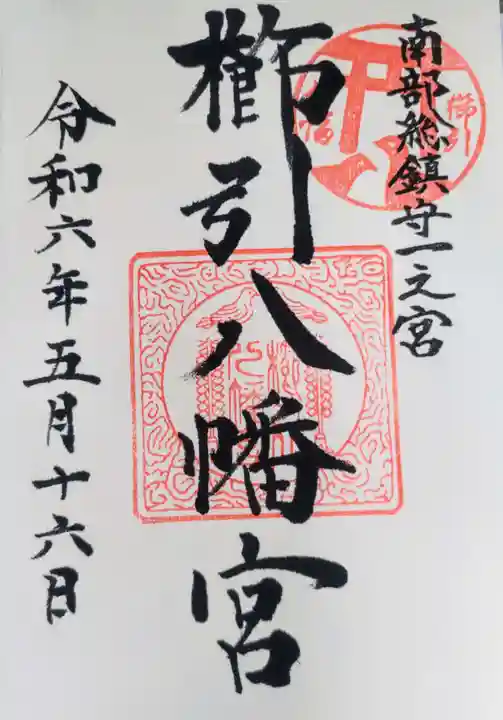 南部総鎮守一之宮
櫛引八幡宮
令和六年五月十六日
櫛引